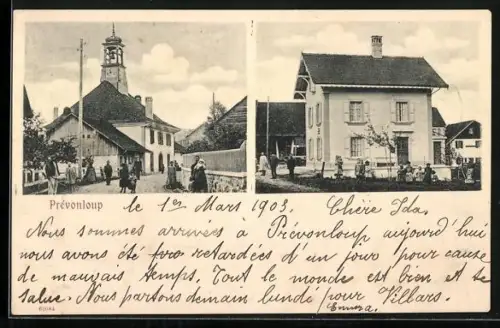 Prévonloup
le 1er Mars 1903. Chère Ida.
Nous sommes arrivés à Prévonloup aujourd'hui
nous avons été fro retardées d'un jour pour cause
de mauvais temps. Tout le monde est bien et te
salue. Nous partons demain lundi pour Villars.
Emma.